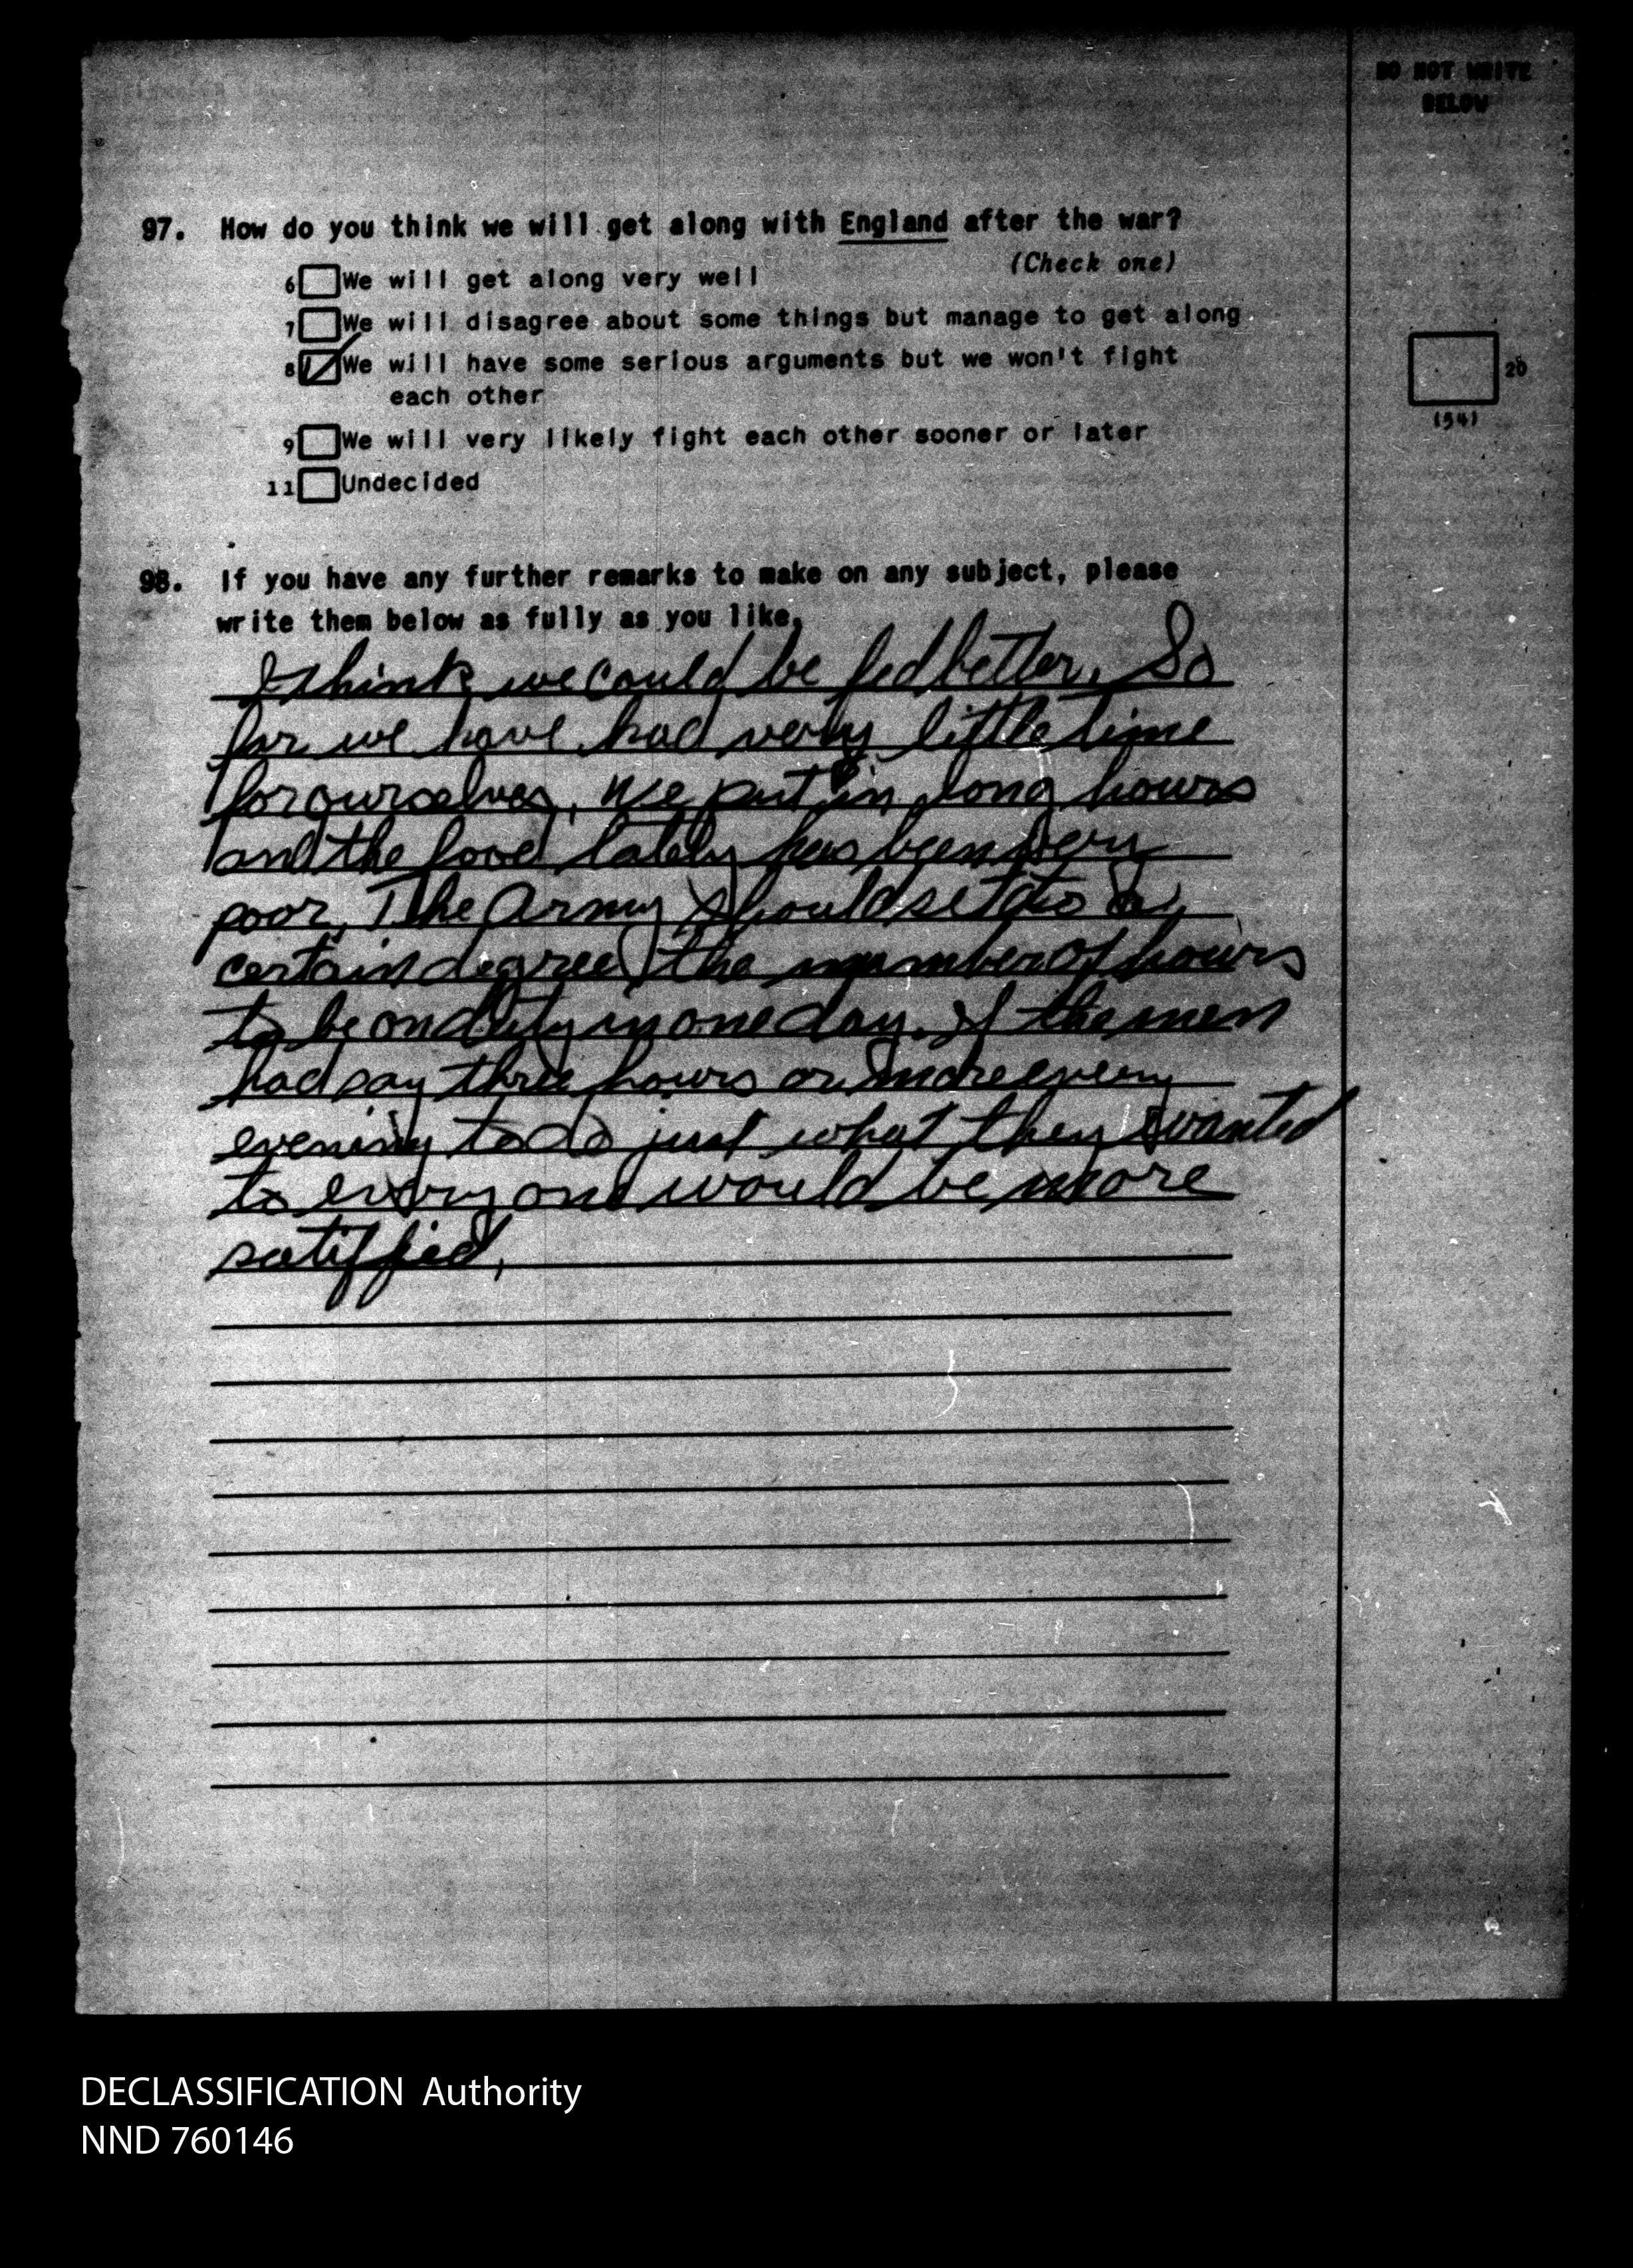 DO NOT WRITE
BELOW
97. How do you think we will get along with England after the war?
(Check one)
6 We will get along very well
7 We will disagree about some things but manage to get along.
8 We will have some serious arguments but we won't fight
each other
9 We will very likely fight each other sooner or later
11 Undecided
26
(54)
98. If you have any further remarks to make on any subject, please
write them below as fully as you like.
I think we could be fed better. So
far we have had very little time
for ourselves, We put in long hours
and the food lately has been very
poor, The Army should set to a
certain degree the number of hours
to be on duty in one day. If the men
had say three hours or more every
evening to do just what they wanted
to everyone would be more
satiffied,
DECLASSIFICATION Authority
NND 760146